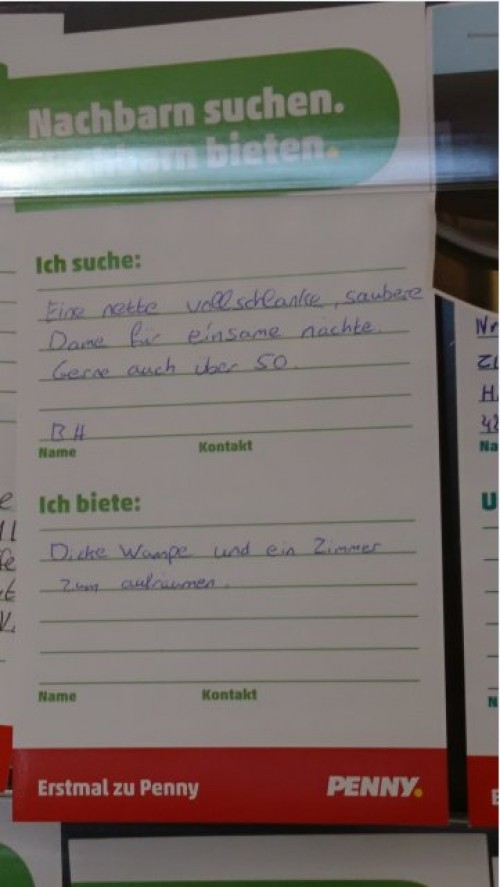 Nachbarn suchen.
Nachbarn bieten.
Ich suche:
Eine nette vollschlanke, saubere
Dame für einsame nächte.
Gerne auch über 50.
BH
Name Kontakt
Ich biete:
Dicke Wampe und ein Zimmer
zum aufräumen.
Name Kontakt
Erstmal zu Penny PENNY.
H.
Na
U
N
E